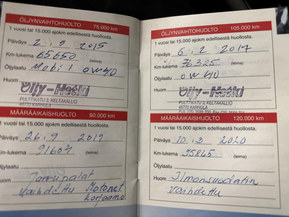 ÖLJYNVAIHTOHUOLTO 75.000 km
1 vuosi tai 15.000 ajkm edellisestä huollosta.
Päiväys 2.9 2015
Km-lukema 65650 (leima)
Öljylaatu Mobil 0W40
Huom
MÄÄRÄAIKAISHUOLTO 90.000 km
1 vuosi tai 15.000 ajkm edellisestä huollosta.
Päiväys 26.9 2019
Km-lukema 91603 (leima)
Öljylaatu
Huom Jarrupalat
vaihdettu
ÖLJYNVAIHTOHUOLTO 105.000 km
1 vuosi tai 15.000 ajkm edellisestä huollosta.
Päiväys 6.2 2017
Km-lukema 76325 (leima)
Öljylaatu 0W40
Huom
MÄÄRÄAIKAISHUOLTO 120.000 km
1 vuosi tai 15.000 ajkm edellisestä huollosta.
Päiväys 10.2 2020
Km-lukema 95865 (leima)
Öljylaatu
Huom Ilmansuodatin
vaihdettu